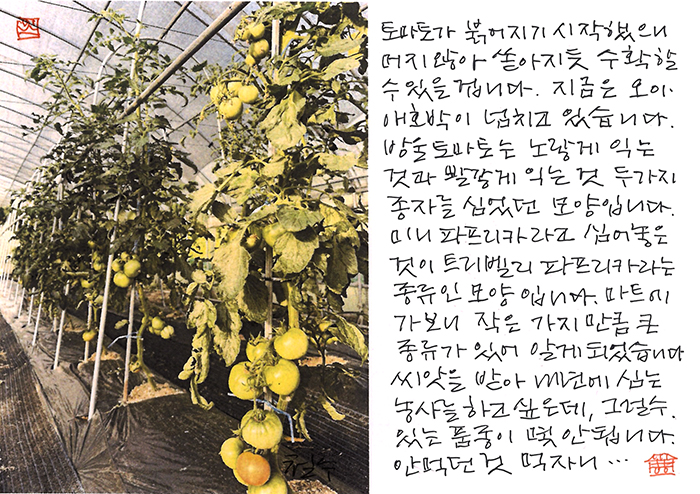 토마토가 붉어지기 시작했으니
머지않아 쏟아지듯 수확할
수 있을 겁니다. 지금은 오이·
애호박이 넘치고 있습니다.
방울토마토는 노랗게 익는
것과 빨갛게 익는 것 두가지
종자를 심었던 모양입니다.
미니 파프리카라고 심어놓은
것이 트리벨리 파프리카라는
종류인 모양입니다. 마트에
가보니 작은 가지만큼 큰
종류가 있어 알게 되었습니다
씨앗을 받아 매년에 심는
농사를 하고 싶은데, 그럴 수.
있는 품종이 몇 안됩니다.
안먹던 것 먹자니 …